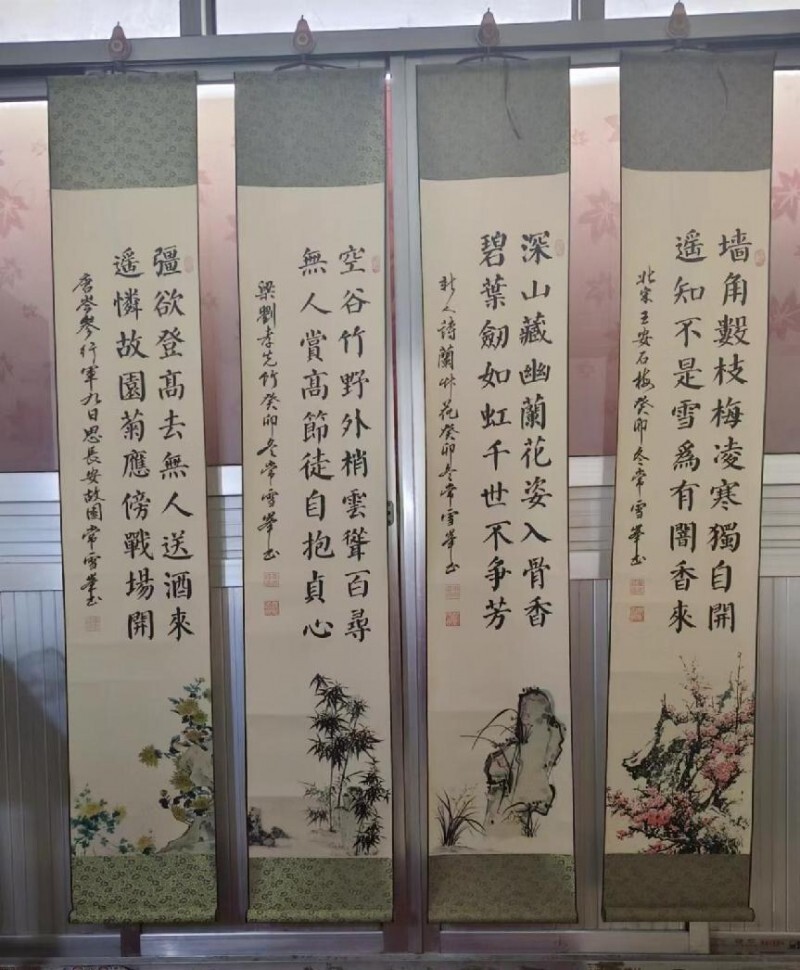 墙角數枝梅凌寒獨自開
遥知不是雪爲有闇香來
北宋王安石梅癸卯冬常雪峯书
深山藏幽蘭花姿入骨香
碧葉劒如虹千世不争芳
詩蘭花癸卯冬常雪峯书
空谷竹野外梢雲聳百尋
無人賞高節徒自抱貞心
梁劉孝先竹癸卯冬常雪峯书
彊欲登髙去無人送酒來
遥憐故園菊應傍戰場開
唐岑參行軍九日思長安故園常雪峯书